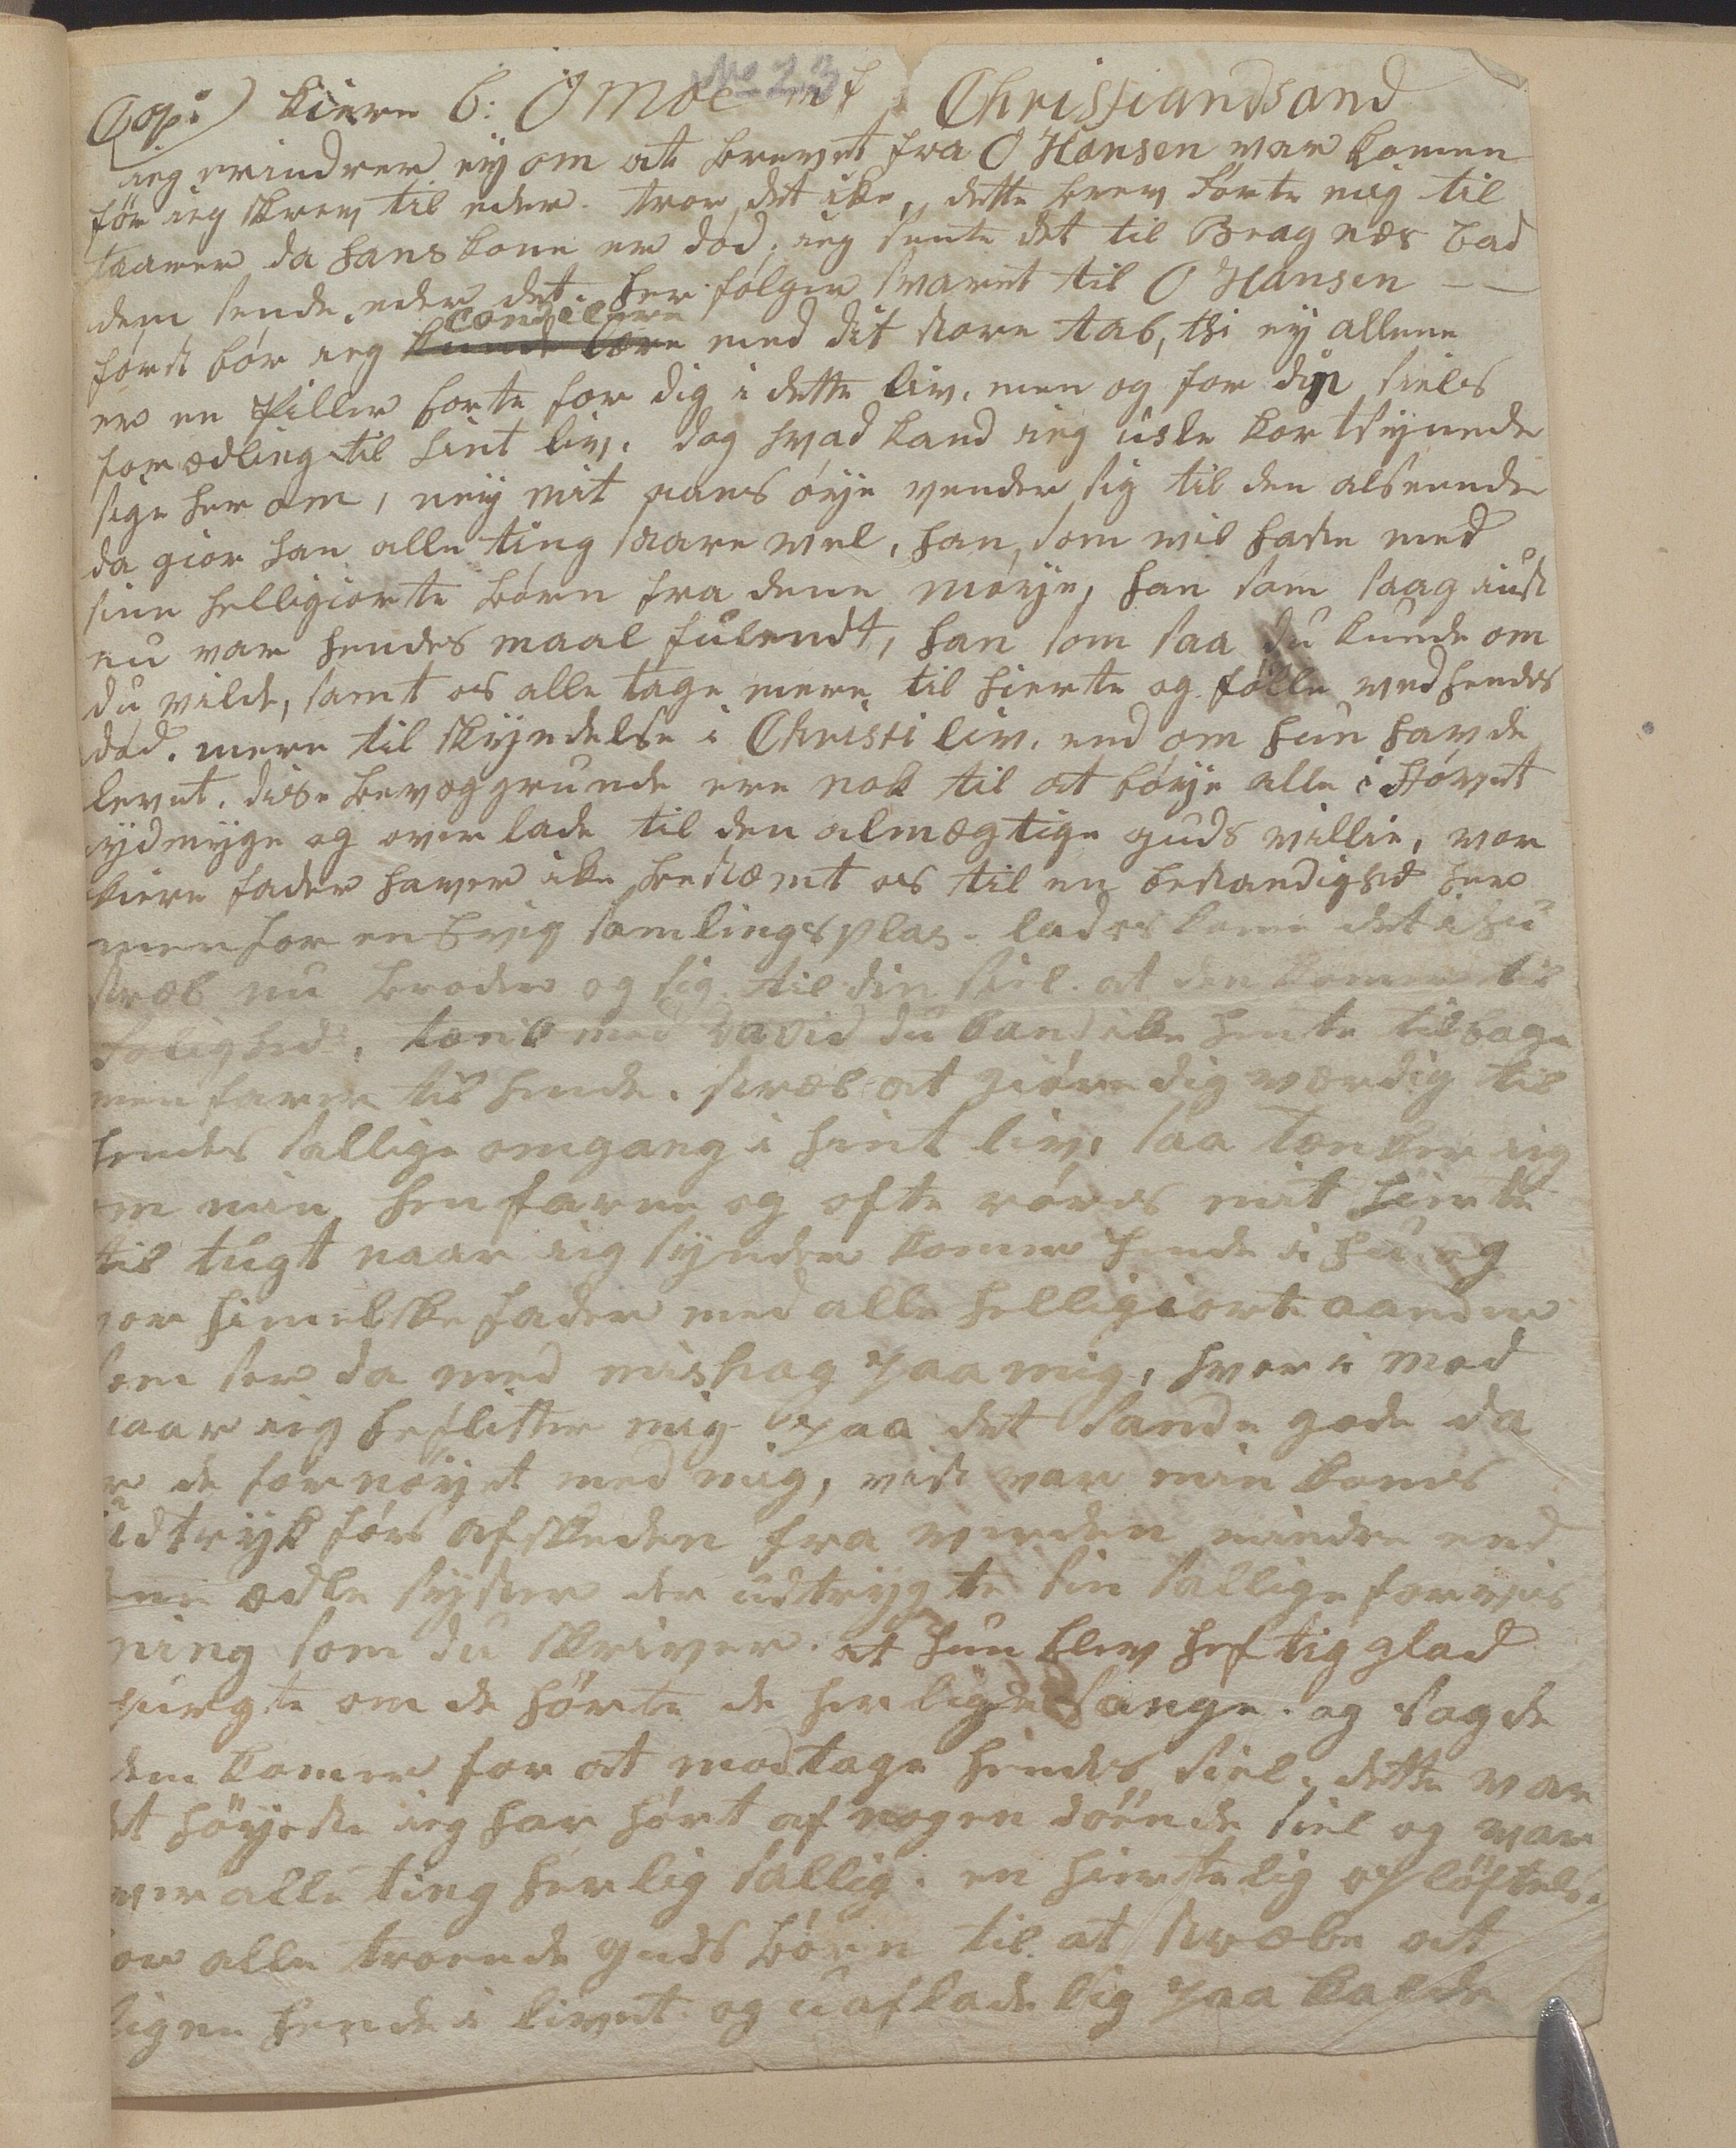 No 23
Copi kiere b: O Moe Christiandsand
ieg erindrer ey om at brevet fra O Hansen var komen
før ieg skrev til eder. tror det ike, dette brev rørte mig til
taarer da hans kone er død, ieg sente det til Bragnæs bad
dem sende eder det. her følger svaret til O Hansen - -
condolere
først bør ieg med dit store tab, thi ey allene
er en Piller borte for dig i dette liv. men og for din siels
foræling til hint liv. dog hvad kand ieg usle kortsynede
sige her om, ney mit aans øye vender sig til den alseende
da giør han alle ting saare vel, han som vil haste med
sine helligiorte børn fra dene møye, han som saag iust
nu var hendes maal fulendt, han som saa du kunde om
du vilde, samt os alle tage mere til hierte og følle ved hendes
død. mere til skyndelse i Christi liv. end om hun havde
levet. disse bevæggrunde ere nok til at bøye alle i støvet
ydmyge og over lade til den almægtige guds villie, vor
kiere fader haver ike bestæmt os til en bestandighed her
men for en evig samlingsplas. lad os kome det i hu
stræb nu broder og sig til din siel. at den komer til
salighed, tænk med David du kand ike hente tilbage
men farer til hende. stræb at giøre dig værdig til
hendes sallige omgang i hint liv, saa tænker ieg
om min hen farne og ofte røres mit hierte
til tugt naar ieg synder komer hende i hu og
vor himelske fader med alle helligiorte aander
som ser da med mishag paa mig, hvor i mod
naar ieg beflitter mig paa det sande gode da
er de fornøyet med mig, vist var min kones
udtryk førs afskeden fra verden mindre end
ædle syster der udtrygte sin sallige forvis
ning som du skriver. at hun blev heftig glad
spurgte om de hørte de herlige sange. og sagde
dem komer for at modtage hendes siel. dette var
det høyeste ieg har hørt af nogen døende siel og var
over alle ting herlig sallig. en hiertelig opløftelse
for alle troende guds børn til at stræbe at
ligne hende i livet og uafladelig paa kalde